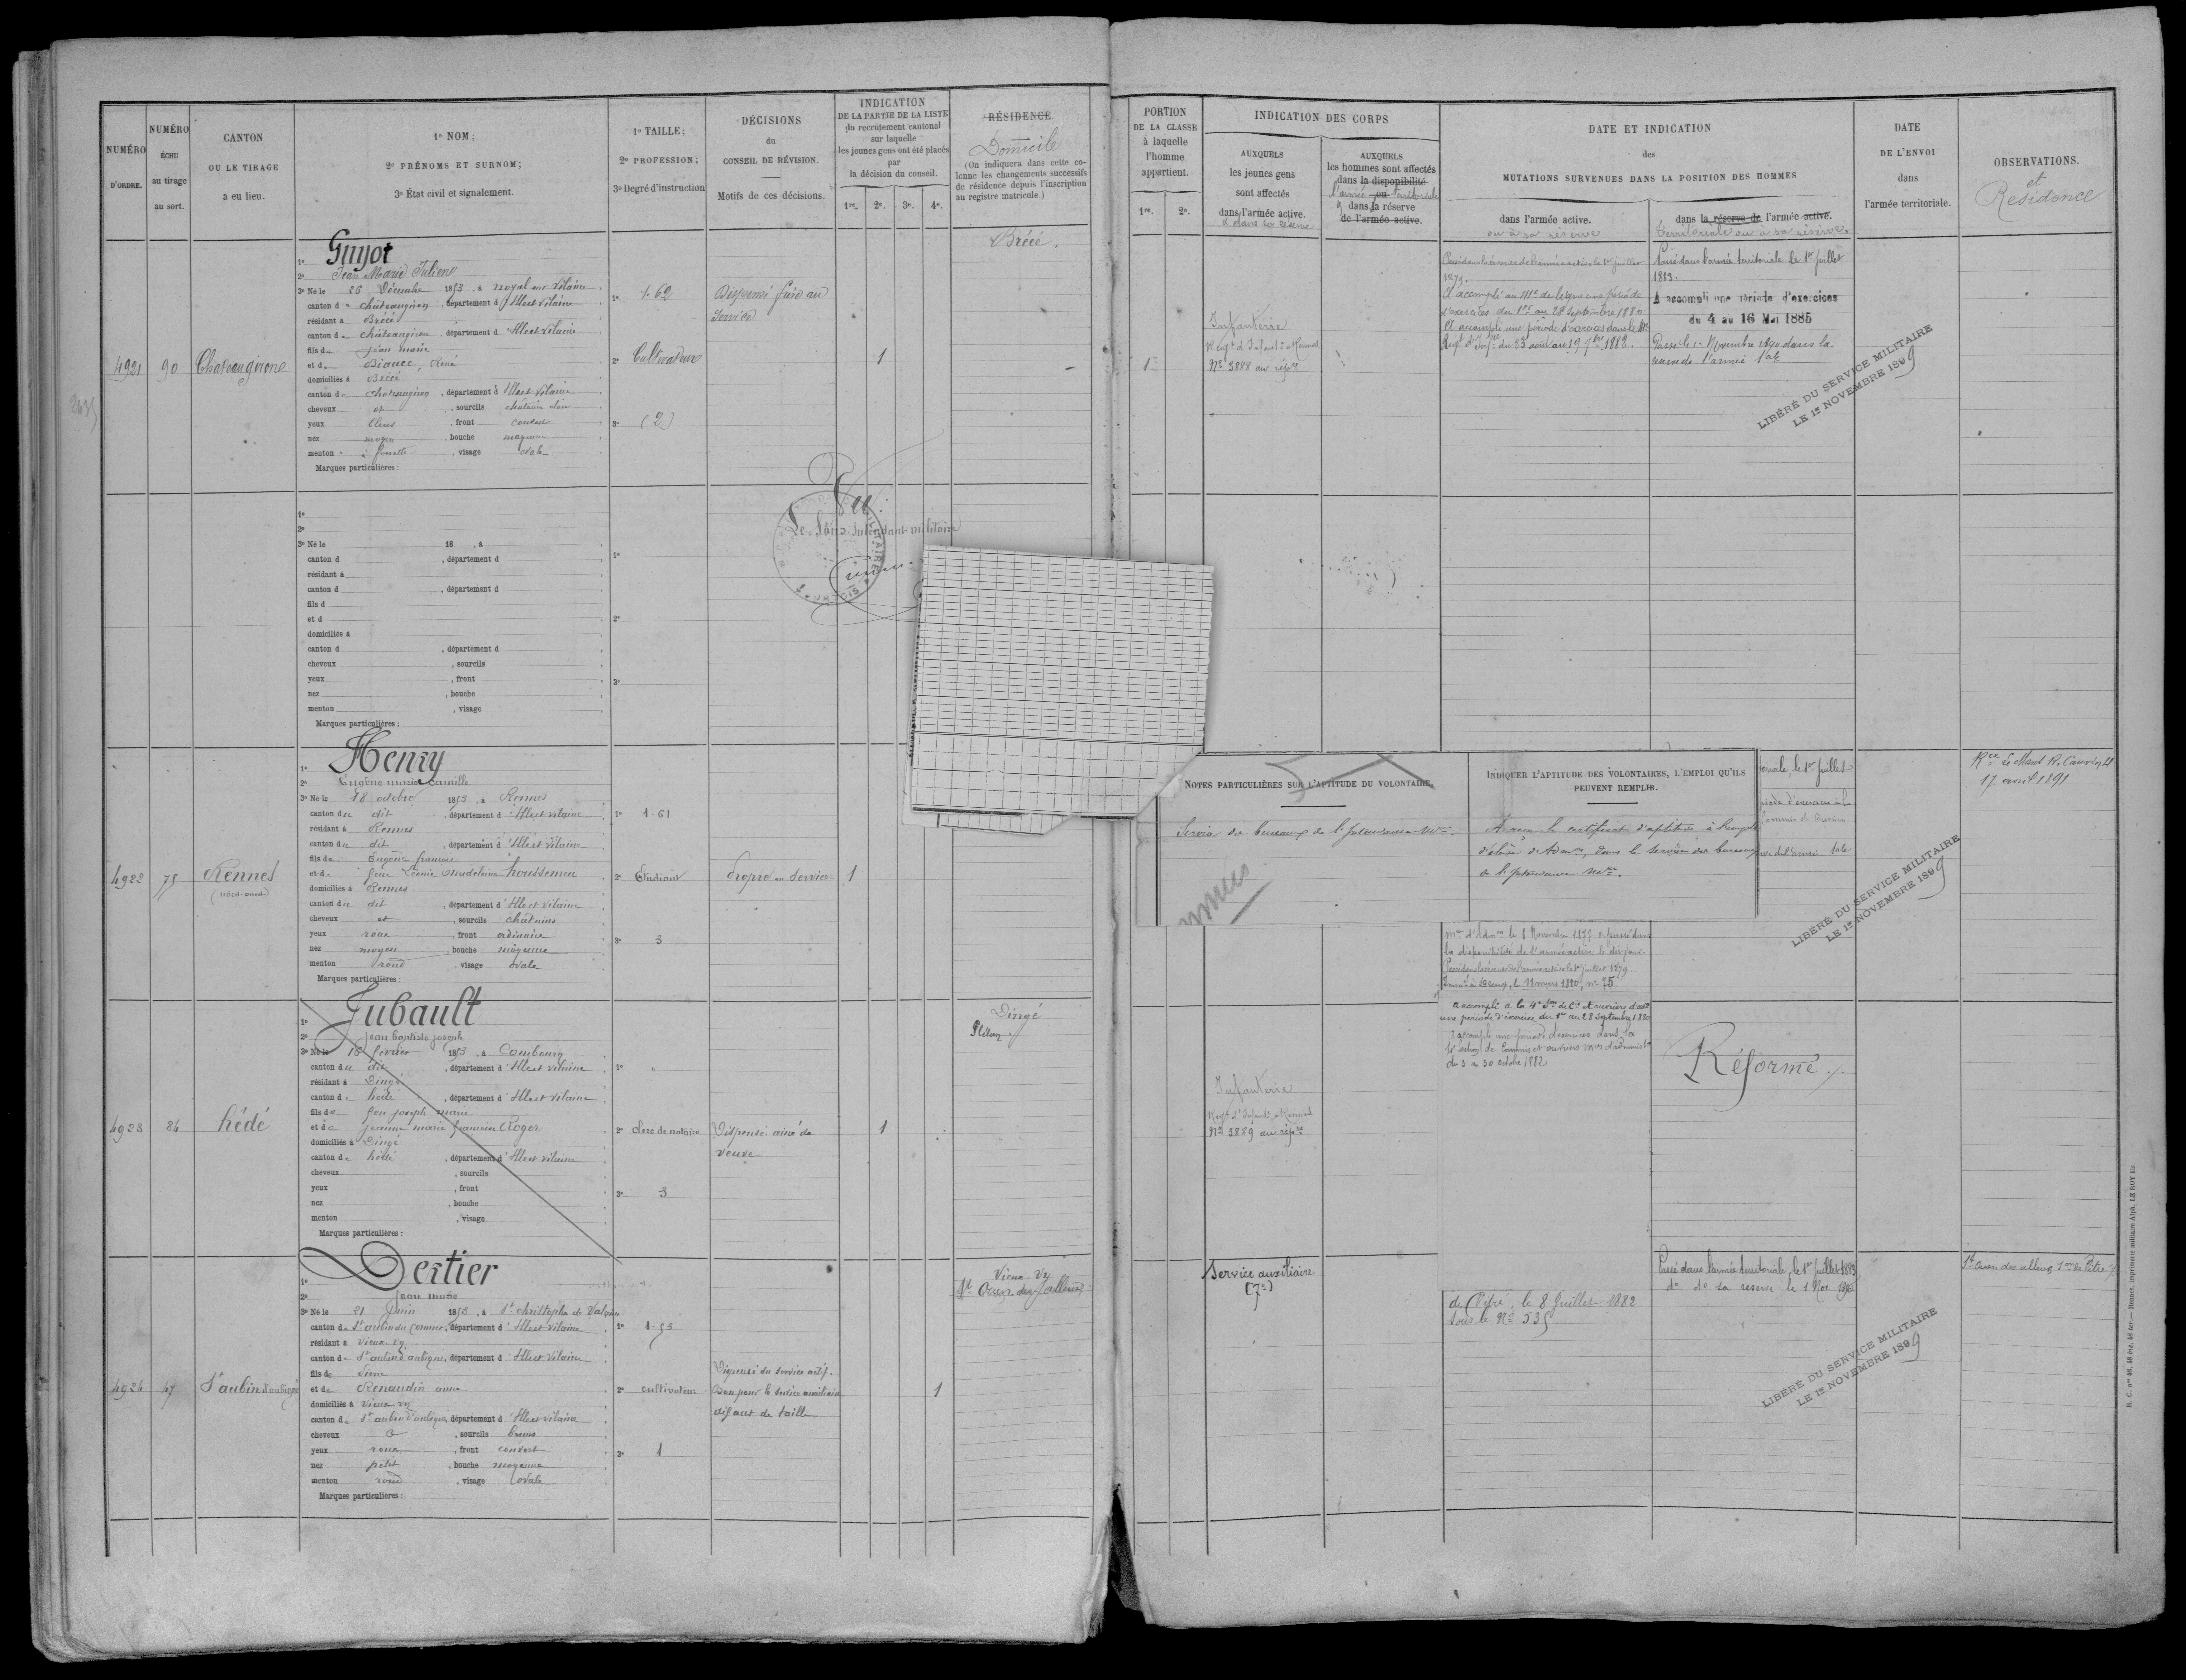 NUMÉRO
D'ORDRE.
NUMÉRO
ÉCHU
au tirage
au sort.
CANTON
OU LE TIRAGE
a eu lieu.
1º NOM;
2º PRÉNOMS ET SURNOM;
3º État civil et signalement.
1º TAILLE;
2º PROFESSION;
3º Degré d'instruction
DÉCISIONS
du
CONSEIL DE RÉVISION.
Motifs de ces décisions.
INDICATION
DE LA PARTIE DE LA LISTE
du recrutement cantonal
sur laquelle
les jeunes gens ont été placés
par
la décision du conseil.
1re. 2e. 3e. 4e.
RÉSIDENCE.
Domicile
(On indiquera dans cette co-
lonne les changements successifs
de résidence depuis l'inscription
au registre matricule.)
PORTION
DE LA CLASSE
à laquelle
l'homme
appartient.
1re. 2e.
INDICATION DES CORPS
AUXQUELS
les jeunes gens
sont affectés
dans l'armée active.
et dans la réserve
AUXQUELS
les hommes sont affectés
dans la disponibilité
l'armée ou territoriale
dans la réserve
de l'armée active.
DATE ET INDICATION
des
MUTATIONS SURVENUES DANS LA POSITION DES HOMMES
dans l'armée active.
ou à sa réserve
dans la réserve de l'armée active.
territoriale ou à sa réserve.
DATE
DE L'ENVOI
dans
l'armée territoriale.
OBSERVATIONS.
et
Résidence
4921
90
Chateaugirone
1º Guyot
2º Jean Marie Julien
3º Né le 26 Décembre 1853, à Noyal sur Vilaine
canton de Châteaugiron, département d'Ille et Vilaine
résidant à Brécé
canton de châteaugiron, département d'Ille et Vilaine
fils de Jean marie
et de Biance, René
domiciliés à Brécé
canton de Chateaugiron, département d'Ille et Vilaine
cheveux et, sourcils chatain clair
yeux bleus, front couvert
nez moyen, bouche moyenne
menton à fossette, visage ovale
Marques particulières:
1º 1.62
2º Cultivateur
3º (2)
Dispensé frère au
service
1
Brécé.
1re
Infanterie
Regt d'Infant. à Rennes
Nº 3888 au répre
Passé dans la réserve de l'armée active le 1er juillet
1879.
A accompli au 41e de ligne une période
d'exercices du 1er au 28 Septembre 1880
A accompli une période d'exercices dans le
Regt d'Infrie du 23 août au 19 7bre 1882.
Passé dans l'armée territoriale le 1er juillet
1883.
A accompli une période d'exercices
du 4 au 16 Mai 1885
Passé le 1er Novembre 1890 dans la
réserve de l'armée tale
LIBÉRÉ DU SERVICE MILITAIRE
LE 1er NOVEMBRE 1899
1º
2º
3º Né le 18 , à
canton d , département d
résidant à
canton d , département d
fils d
et d
domiciliés à
canton d , département d
cheveux , sourcils
yeux , front
nez , bouche
menton , visage
Marques particulières:
1º
2º
3º
Vu
Le Sous-Intendant militaire
4922
75
Rennes
(nord-ouest)
1º Henry
2º Eugène marie camille
3º Né le 18 octobre 1853, à Rennes
canton du dit, département d'Ille et vilaine
résidant à Rennes
canton du dit, département d'Ille et vilaine
fils de Eugène francois
et de feue Léonie madeleine houssemen
domiciliés à Rennes
canton du dit, département d'Ille et vilaine
cheveux et, sourcils chatains
yeux roux, front ordinaire
nez moyen, bouche moyenne
menton rond, visage ovale
Marques particulières:
1º 1.61
2º Etudiant
3º 3
Propre au Service
1
NOTES PARTICULIÈRES SUR L'APTITUDE DU VOLONTAIRE.
Servira des bureaux de l'Intendance Mre.
INDIQUER L'APTITUDE DES VOLONTAIRES, L'EMPLOI QU'ILS
PEUVENT REMPLIR.
A reçu le certificat d'aptitude à l'emploi
d'élève d'Admon, dans le service des bureaux
de l'Intendance Mre.
toriale, le 1er juillet
riode d'exercices à la
Commis et Ouvriers
rve de l'armée tale
mre d'Admon le 8 Novembre 1877 & passé dans
la disponibilité de l'armée active le dit jour.
Passé dans la réserve de l'armée active le 1er juillet 1879
Immlé à , le 11 mars 1880, nº 75
A accompli à la 4e Son de Cis et ouvriers d'adon
une période d'exercice du 1er au 28 Septembre 1880
A accompli une période d'exercices dans la
section de Commis et ouvriers mres d'administon
du 3 au 30 octobre 1882
Rce Le Mans R. Cauvin 21
17 avril 1891
LIBÉRÉ DU SERVICE MILITAIRE
LE 1er NOVEMBRE 1899
4923
24
hédé
1º Jubault
2º jean baptiste joseph
3º Né le 16 février 1853, à Combourg
canton du dit, département d'Ille et vilaine
résidant à Dingé
canton de hédé, département d'Ille et vilaine
fils de feu joseph marie
et de jeanne marie francoise Roger
domiciliés à Dingé
canton de hédé, département d'Ille et vilaine
cheveux , sourcils
yeux , front
nez , bouche
menton , visage
Marques particulières:
1º
2º clerc de notaire
3º 3
Dispensé ainé de
veuve
1
Dingé
Infanterie
Regt d'Infant. à Rennes
Nº 3889 au répre
Réformé.
4924
47
St aubin d'aubigné
1º Dertier
2º jean marie
3º Né le 21 juin 1853, à St christophe de Valains
canton de St aubin du Cormier, département d'Ille et vilaine
résidant à vieux-vy
canton de St aubin d'aubigné, département d'Ille et vilaine
fils de Pierre
et de Renaudin anne
domiciliés à vieux-vy
canton de St aubin d'aubigné, département d'Ille et vilaine
cheveux &, sourcils bruns
yeux roux, front couvert
nez petit, bouche moyenne
menton rond, visage ovale
Marques particulières:
1º 1.53
2º cultivateur
3º 1
Dispensé du service actif.
Bon pour le service auxiliaire
défaut de taille
1
Vieux-Vy
St Ouen des alleux
Service auxiliaire
(7e)
de Vitré, le 8 Juillet 1882
sous le Nº 535
Passé dans l'armée territoriale, le 1er juillet 1883
do do sa réserve le 1 Nov.
St Ouen des alleux,
LIBÉRÉ DU SERVICE MILITAIRE
LE 1er NOVEMBRE 1899
R. C. nos 48, 48 bis, 48 ter. — Rennes, imprimerie militaire Alph. LE ROY fils